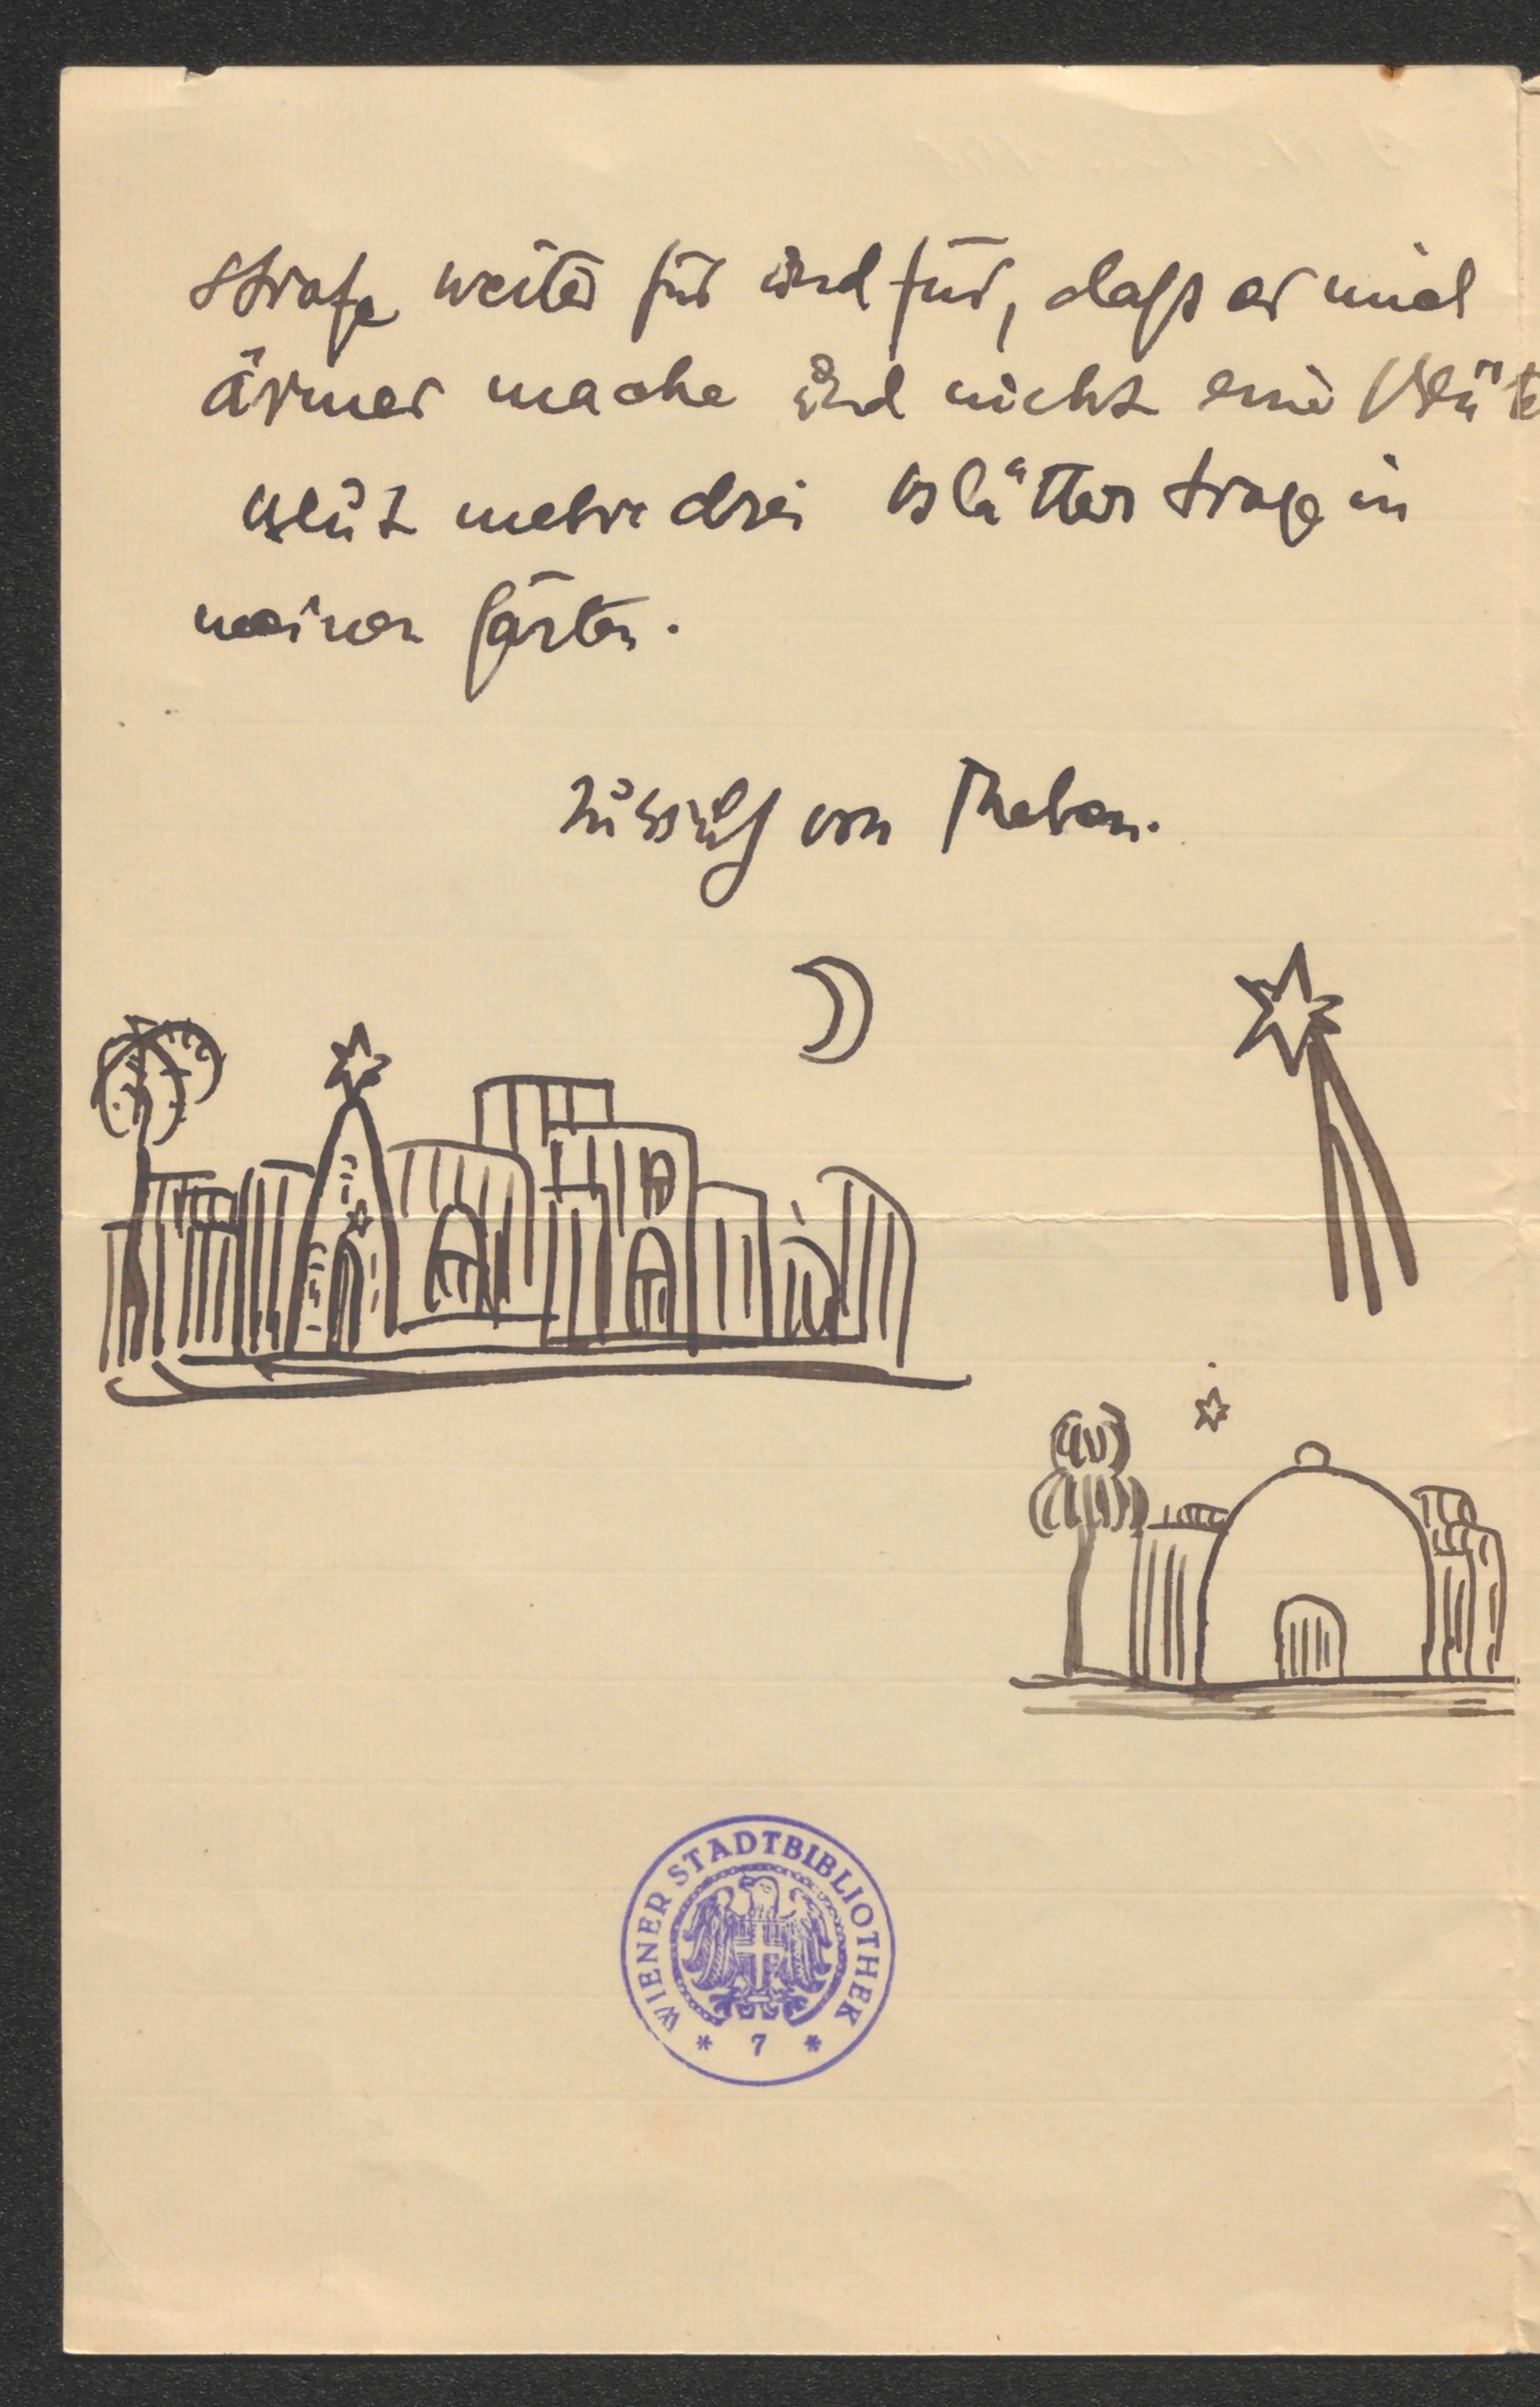 strafe weiter für und für, daß er mich
ärmer mache und nicht eine Blüte
blüt mehr drei Blätter trage in
meinen Gärten.
Jussuf von Theben.
WIENER STADTBIBLIOTHEK
* 7 *